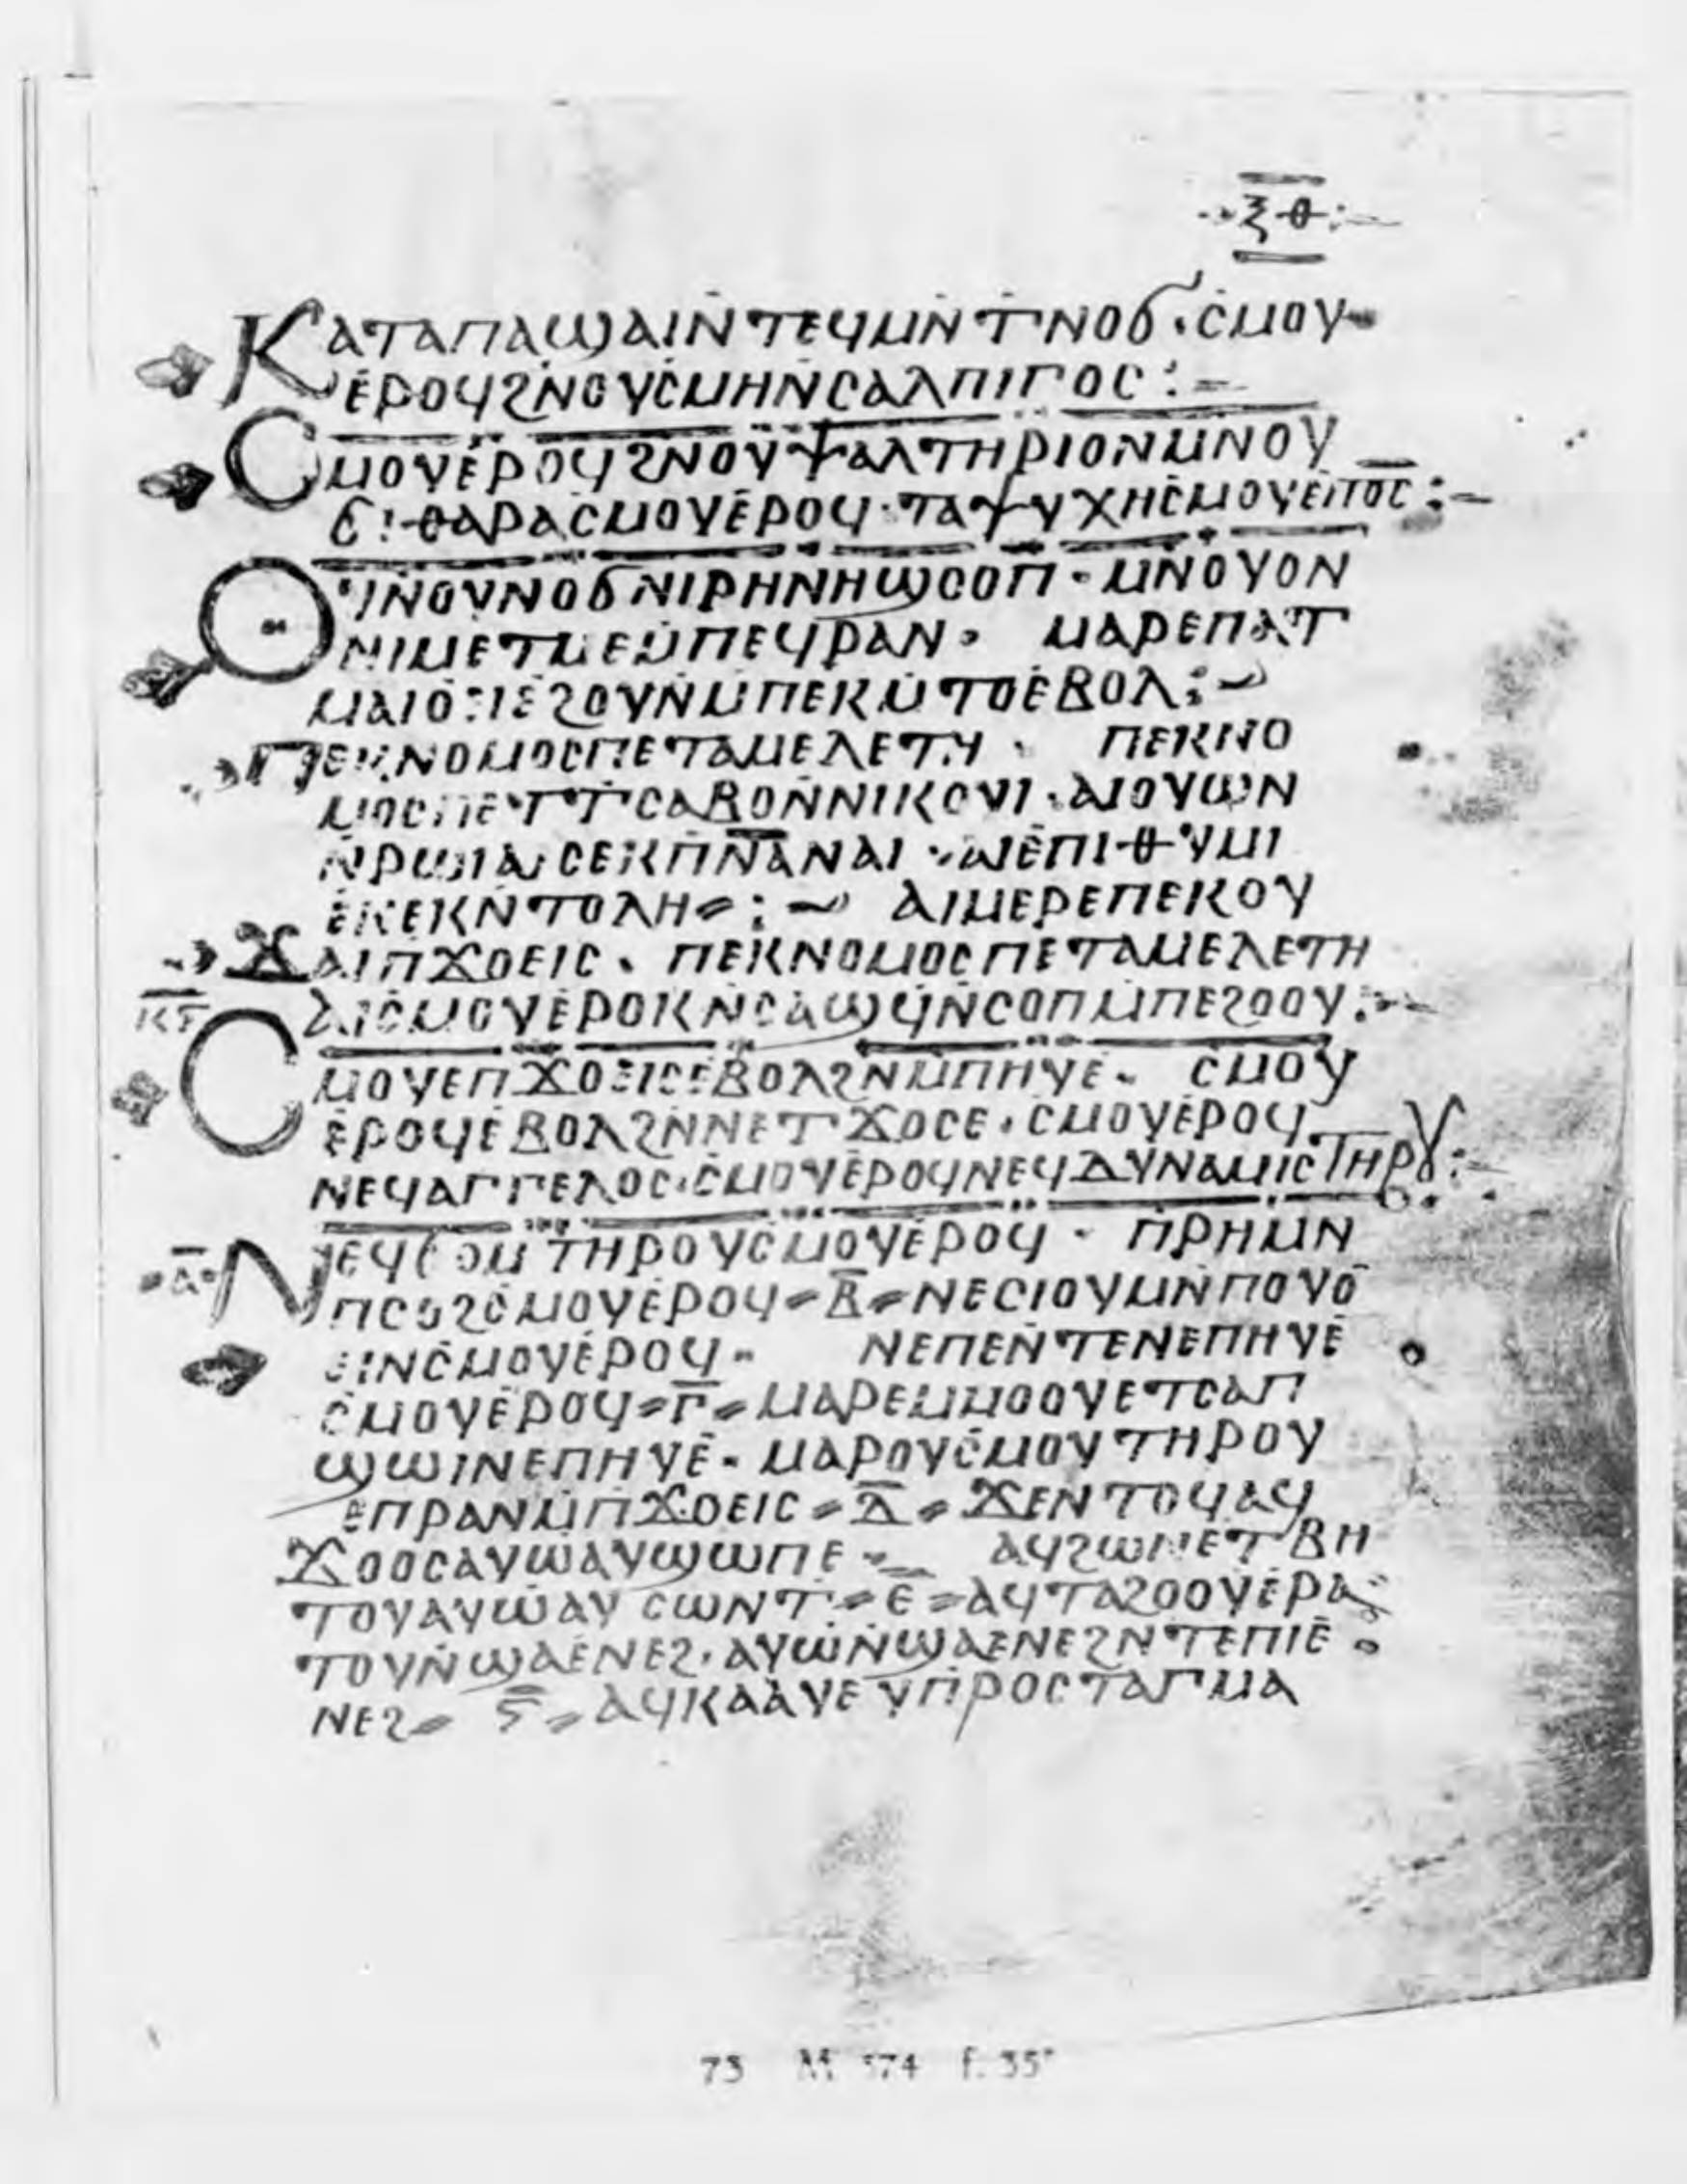 ⲝⲑ
ⲕⲁⲧⲁⲡⲁϣⲁⲓⲛ̇ⲧⲉϥⲙⲛ̇ⲧ̇ⲛⲟϭ·ⲥ̇ⲙⲟⲩ
ⲉ̇ⲣⲟϥϩⲛ̇ⲟⲩⲥ̇ⲙⲏⲛ̇ⲥⲁⲗⲡⲓⲅⲟⲥ:=
ⲥⲙⲟⲩⲉ̇ⲣⲟϥϩⲛⲟⲩⲯⲁⲗⲧⲏⲣⲓⲟⲛⲙⲛⲟⲩ
ϭⲓⲑⲁⲣⲁⲥ̇ⲙⲟⲩⲉ̇ⲣⲟϥ·ⲧⲁⲯⲩⲭⲏⲥ̇ⲙⲟⲩⲉⲡϭⲥ̅:–
ⲟⲩⲛ̇ⲟⲩⲛⲟϭⲛⲓⲣⲏⲛⲏϣⲟⲟⲡ·ⲙⲛ̇ⲟⲩⲟⲛ
ⲛⲓⲙⲉⲧⲙⲉⲙ̇ⲡⲉϥⲣⲁⲛ· ⲙⲁⲣⲉⲡⲁⲧ
ⲙⲁⲓⲟ̇ⲉⲓⲉ̇ϩⲟⲩⲛⲙ̇ⲡⲉⲕⲙ̇ⲧⲟⲉ̇ⲃⲟⲗ:~
ⲡⲉⲕⲛⲟⲙⲟⲥⲡⲉⲧⲁⲙⲉⲗⲉⲧⲏ· ⲡⲉⲕⲛⲟ
ⲙⲟⲥⲡⲉⲧⲧ̇ⲥⲁⲃⲟⲛ̇ⲛⲓⲕⲟⲩⲓ·ⲁⲓⲟⲩⲱⲛ
ⲛ̇ⲣⲱⲓⲁⲓⲥⲉⲕⲡⲛ̅ⲁ̅ⲛⲁⲓ·ⲁⲓⲉ̇ⲡⲓⲑⲩⲙⲓ
ⲉ̇ⲛⲉⲕⲛ̇ⲧⲟⲗⲏ=:~ ⲁⲓⲙⲉⲣⲉⲡⲉⲕⲟⲩ
ϫⲁⲓⲡϫⲟⲉⲓⲥ· ⲡⲉⲕⲛⲟⲙⲟⲥⲡⲉⲧⲁⲙⲉⲗⲉⲧⲏ
ⲁⲓⲥ̇ⲙⲟⲩⲉ̇ⲣⲟⲕⲛ̇ⲥⲁϣϥ̇ⲛ̇ⲥⲟⲡⲙ̇ⲡⲉϩⲟⲟⲩ:–
ⲥⲙⲟⲩⲉⲡϫⲟⲉⲓⲥⲉ̇ⲃⲟⲗϩⲛⲙ̇ⲡⲏⲩⲉ̇· ⲥⲙⲟⲩ
ⲉ̇ⲣⲟϥⲉ̇ⲃⲟⲗϩⲛ̇ⲛⲉⲧϫⲟⲥⲉ·ⲥ̇ⲙⲟⲩⲉ̇ⲣⲟϥ
ⲛⲉϥⲁⲅⲅⲉⲗⲟⲥ·ⲥ̇ⲙⲟⲩⲉ̇ⲣⲟϥⲛⲉϥⲇⲩⲛⲁⲙⲓⲥⲧⲏⲣⲟⲩ:–
ⲁ̅ ⲛⲉϥϭⲟⲙⲧⲏⲣⲟⲩⲥ̇ⲙⲟⲩⲉ̇ⲣⲟϥ· ⲡ̇ⲣⲏⲙⲛ
ⲡⲟⲟϩⲥ̇ⲙⲟⲩⲉ̇ⲣⲟϥ=ⲃ̅=ⲛⲉⲥⲓⲟⲩⲙⲛ̇ⲡⲟⲩⲟ̅
ⲉⲓⲛⲥ̇ⲙⲟⲩⲉ̇ⲣⲟϥ· ⲛⲉⲡⲉⲛ̇ⲧⲉⲛⲉⲡⲏⲩⲉ̇
ⲥ̇ⲙⲟⲩⲉ̇ⲣⲟϥ=ⲅ̅=ⲙⲁⲣⲉⲙⲙⲟⲟⲩⲉⲧⲥⲁⲡ
ϣⲱⲓⲛⲉⲡⲏⲩⲉ̇· ⲙⲁⲣⲟⲩⲥ̇ⲙⲟⲩⲧⲏⲣⲟⲩ
ⲉⲡⲣⲁⲛⲙ̇ⲡϫⲟⲉⲓⲥ=ⲇ̅=ϫⲉⲛⲧⲟϥⲁϥ
ϫⲟⲟⲥⲁⲩⲱⲁⲩϣⲱⲡⲉ= ⲁϥϩⲱⲛⲉⲧⲃⲏ
ⲧⲟⲩⲁⲩⲱ̇ⲁⲩⲥⲱⲛⲧ=ⲉ̅=ⲁϥⲧⲁϩⲟⲟⲩⲉ̇ⲣⲁ
ⲧⲟⲩⲛ̇ϣⲁⲉ̇ⲛⲉϩ·ⲁⲩⲱⲛ̇ϣⲁⲉⲛⲉϩⲛ̇ⲧⲉⲡⲓⲉ̇
ⲛⲉϩ= ⲋ̅=ⲁϥⲕⲁⲁⲩⲉⲩⲡ̇ⲣⲟⲥⲧⲁⲅⲙⲁ
73 M 574 f. 35ʳ